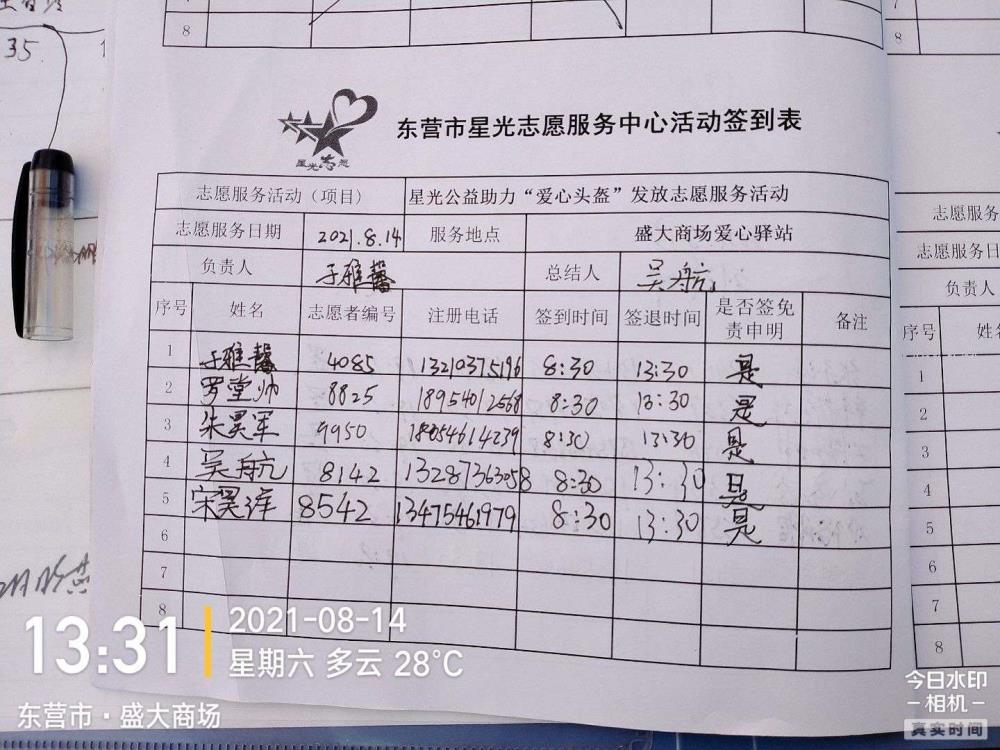 35
8
8
星光志愿
东营市星光志愿服务中心活动签到表
志愿服务活动（项目） 星光公益助力“爱心头盔”发放志愿服务活动
志愿服务日期 2021.8.14 服务地点 盛大商场爱心驿站
负责人 于雅馨 总结人 吴航
序号 姓名 志愿者编号 注册电话 签到时间 签退时间 是否签免责申明 备注
1 于雅馨 4085 13210375196 8:30 13:30 是
2 罗堂帅 8825 18954012568 8:30 13:30 是
3 朱昊军 9950 18054614239 8:30 13:30 是
4 吴航 8142 13287363058 8:30 13:30 是
5 宋昊泽 8542 13475461979 8:30 13:30 是
6
7
8
志愿服务
志愿服务日
负责人
序号 姓
1
2
3
4
5
6
7
8
13:31
2021-08-14
星期六 多云 28°C
东营市·盛大商场
今日水印
-相机-
真实时间